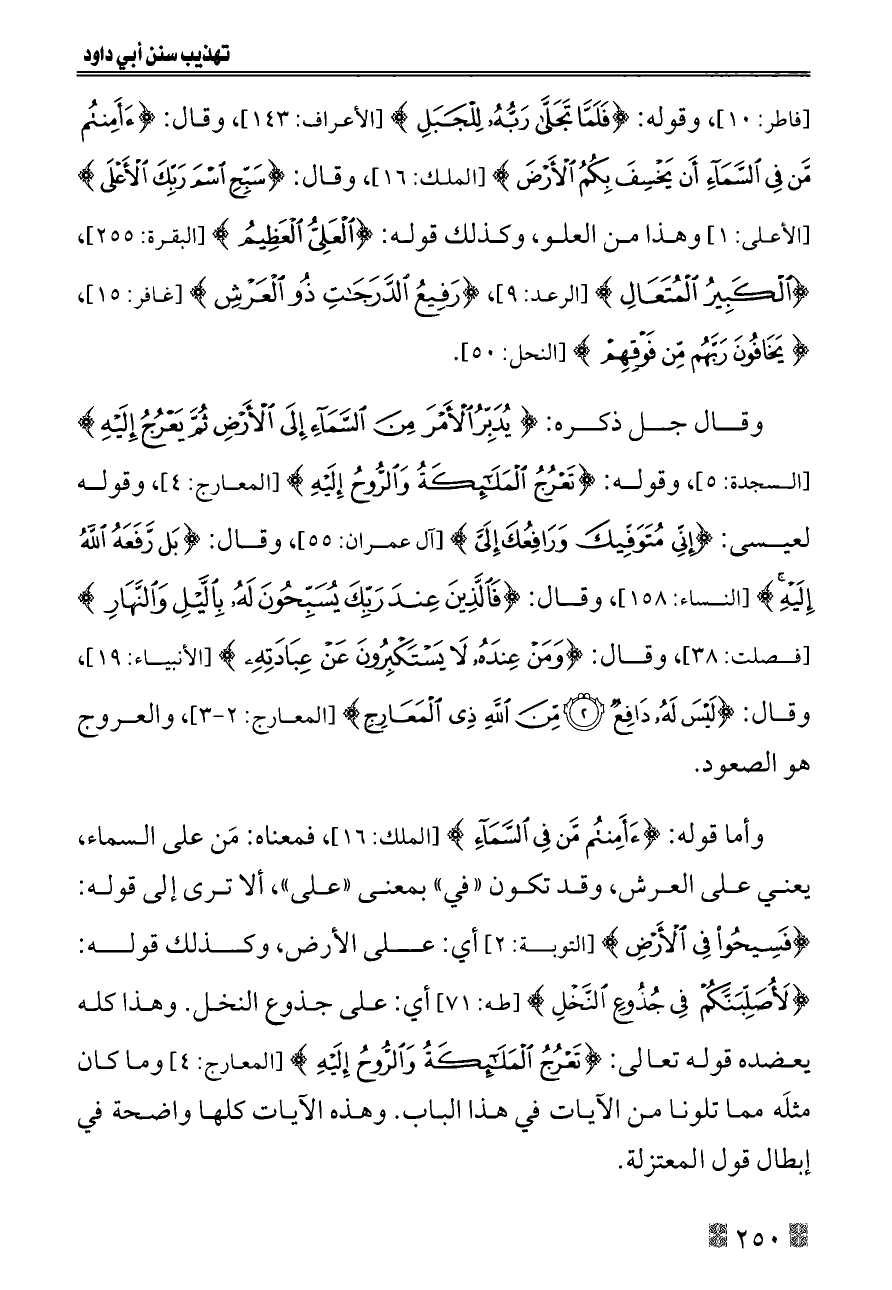 تهذيب سنن أبي داود
[فاطر: ١٠]، وقوله: ﴿فَلَمَّا تَجَلَّىٰ رَبُّهُۥ لِلْجَبَلِ﴾ [الأعراف: ١٤٣]، وقال: ﴿ءَأَمِنتُم
مَّن فِي ٱلسَّمَآءِ أَن يَخْسِفَ بِكُمُ ٱلْأَرْضَ﴾ [الملك: ١٦]، وقال: ﴿سَبِّحِ ٱسْمَ رَبِّكَ ٱلْأَعْلَى﴾
[الأعلى: ١] وهذا من العلو، وكذلك قوله: ﴿ٱلْعَلِيُّ ٱلْعَظِيمُ﴾ [البقرة: ٢٥٥]،
﴿ٱلْكَبِيرُ ٱلْمُتَعَالِ﴾ [الرعد: ٩]، ﴿رَفِيعُ ٱلدَّرَجَٰتِ ذُو ٱلْعَرْشِ﴾ [غافر: ١٥]،
﴿يَخَافُونَ رَبَّهُم مِّن فَوْقِهِمْ﴾ [النحل: ٥٠].
وقال جل ذكره: ﴿يُدَبِّرُ ٱلْأَمْرَ مِنَ ٱلسَّمَآءِ إِلَى ٱلْأَرْضِ ثُمَّ يَعْرُجُ إِلَيْهِ﴾
[السجدة: ٥]، وقوله: ﴿تَعْرُجُ ٱلْمَلَٰٓئِكَةُ وَٱلرُّوحُ إِلَيْهِ﴾ [المعارج: ٤]، وقوله
لعيسى: ﴿إِنِّي مُتَوَفِّيكَ وَرَافِعُكَ إِلَيَّ﴾ [آل عمران: ٥٥]، وقال: ﴿بَل رَّفَعَهُ ٱللَّهُ
إِلَيْهِ ۚ﴾ [النساء: ١٥٨]، وقال: ﴿فَٱلَّذِينَ عِندَ رَبِّكَ يُسَبِّحُونَ لَهُۥ بِٱلَّيْلِ وَٱلنَّهَارِ﴾
[فصلت: ٣٨]، وقال: ﴿وَمَنْ عِندَهُۥ لَا يَسْتَكْبِرُونَ عَنْ عِبَادَتِهِۦ﴾ [الأنبياء: ١٩]،
وقال: ﴿لَيْسَ لَهُۥ دَافِعٌ ٢ مِّنَ ٱللَّهِ ذِي ٱلْمَعَارِجِ﴾ [المعارج: ٢-٣]، والعروج
هو الصعود.
وأما قوله: ﴿ءَأَمِنتُم مَّن فِي ٱلسَّمَآءِ﴾ [الملك: ١٦]، فمعناه: مَن على السماء،
يعني على العرش، وقد تكون «في» بمعنى «على»، ألا ترى إلى قوله:
﴿فَسِيحُوا۟ فِي ٱلْأَرْضِ﴾ [التوبة: ٢] أي: على الأرض، وكذلك قوله:
﴿لَأُصَلِّبَنَّكُمْ فِي جُذُوعِ ٱلنَّخْلِ﴾ [طه: ٧١] أي: على جذوع النخل. وهذا كله
يعضده قوله تعالى: ﴿تَعْرُجُ ٱلْمَلَٰٓئِكَةُ وَٱلرُّوحُ إِلَيْهِ﴾ [المعارج: ٤] وما كان
مثلَه مما تلونا من الآيات في هذا الباب. وهذه الآيات كلها واضحة في
إبطال قول المعتزلة.
٢٥٠